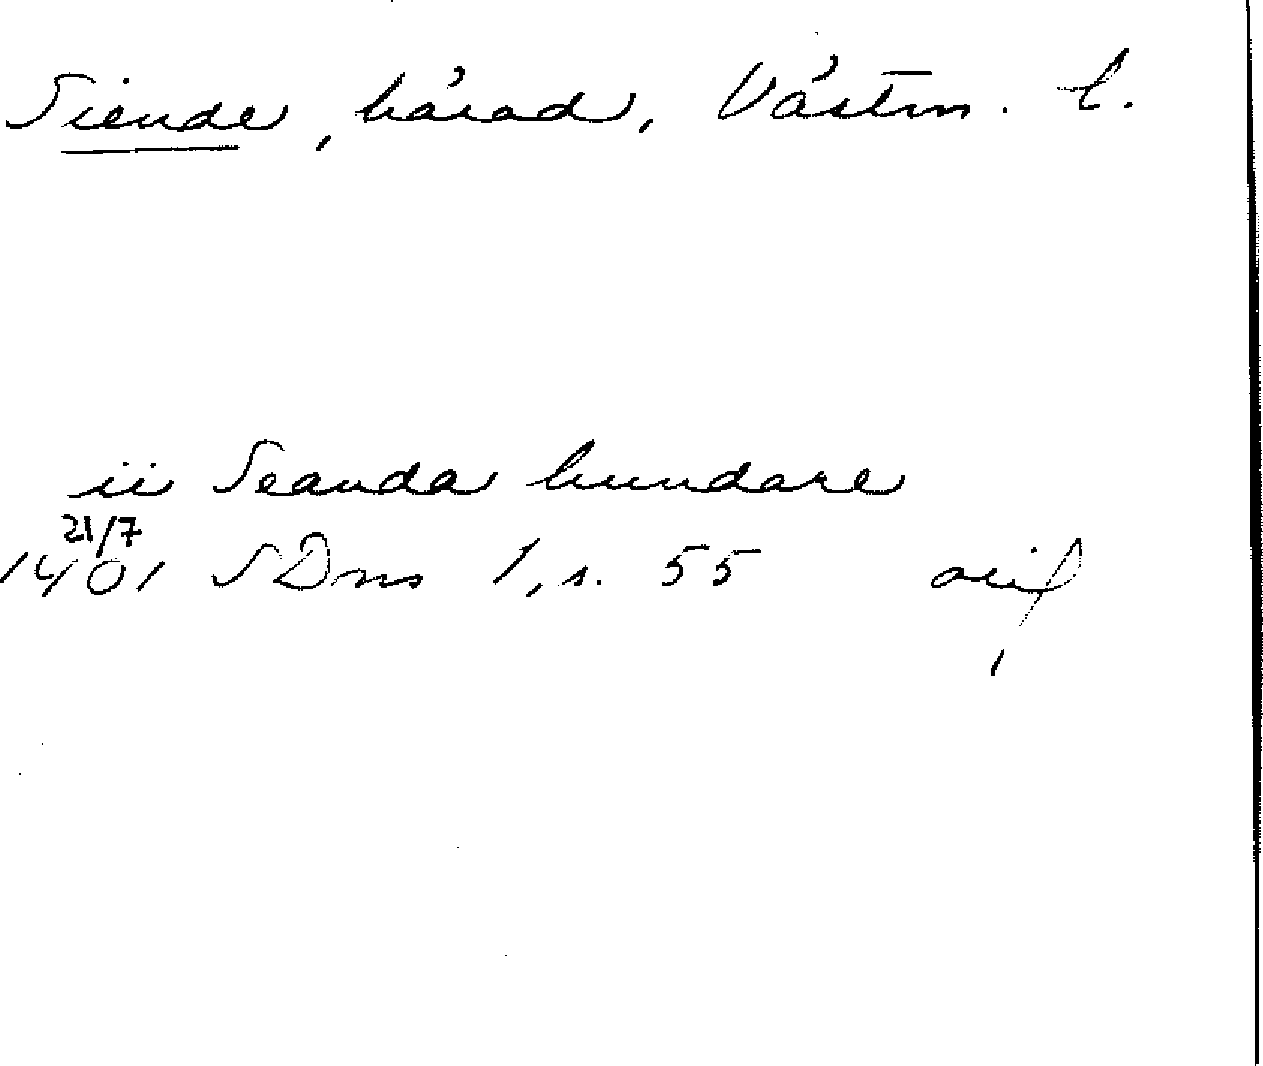 Siende, härad, Västm. l.
ii Seanda hundare
21/7
1401 SDns 1, s. 55 orig